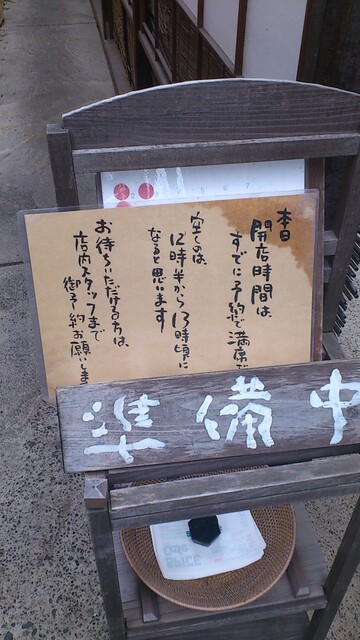 本日
開店時間は、
すでに予約で満席で
空くのは、
12時半から13時頃に
なると思います
お待ちいただける方は、
店内スタッフまで
御予約お願いしま
準備中
5 6 7
SPICE
Cafe